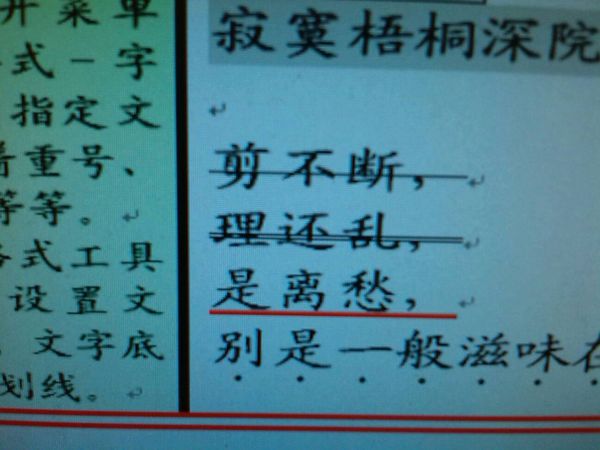 开菜单
式－字
指定文
着重号、
等等。
格式工具
设置文
文字底
划线。
寂寞梧桐深院
剪不断，
理还乱，
是离愁，
别是一般滋味在